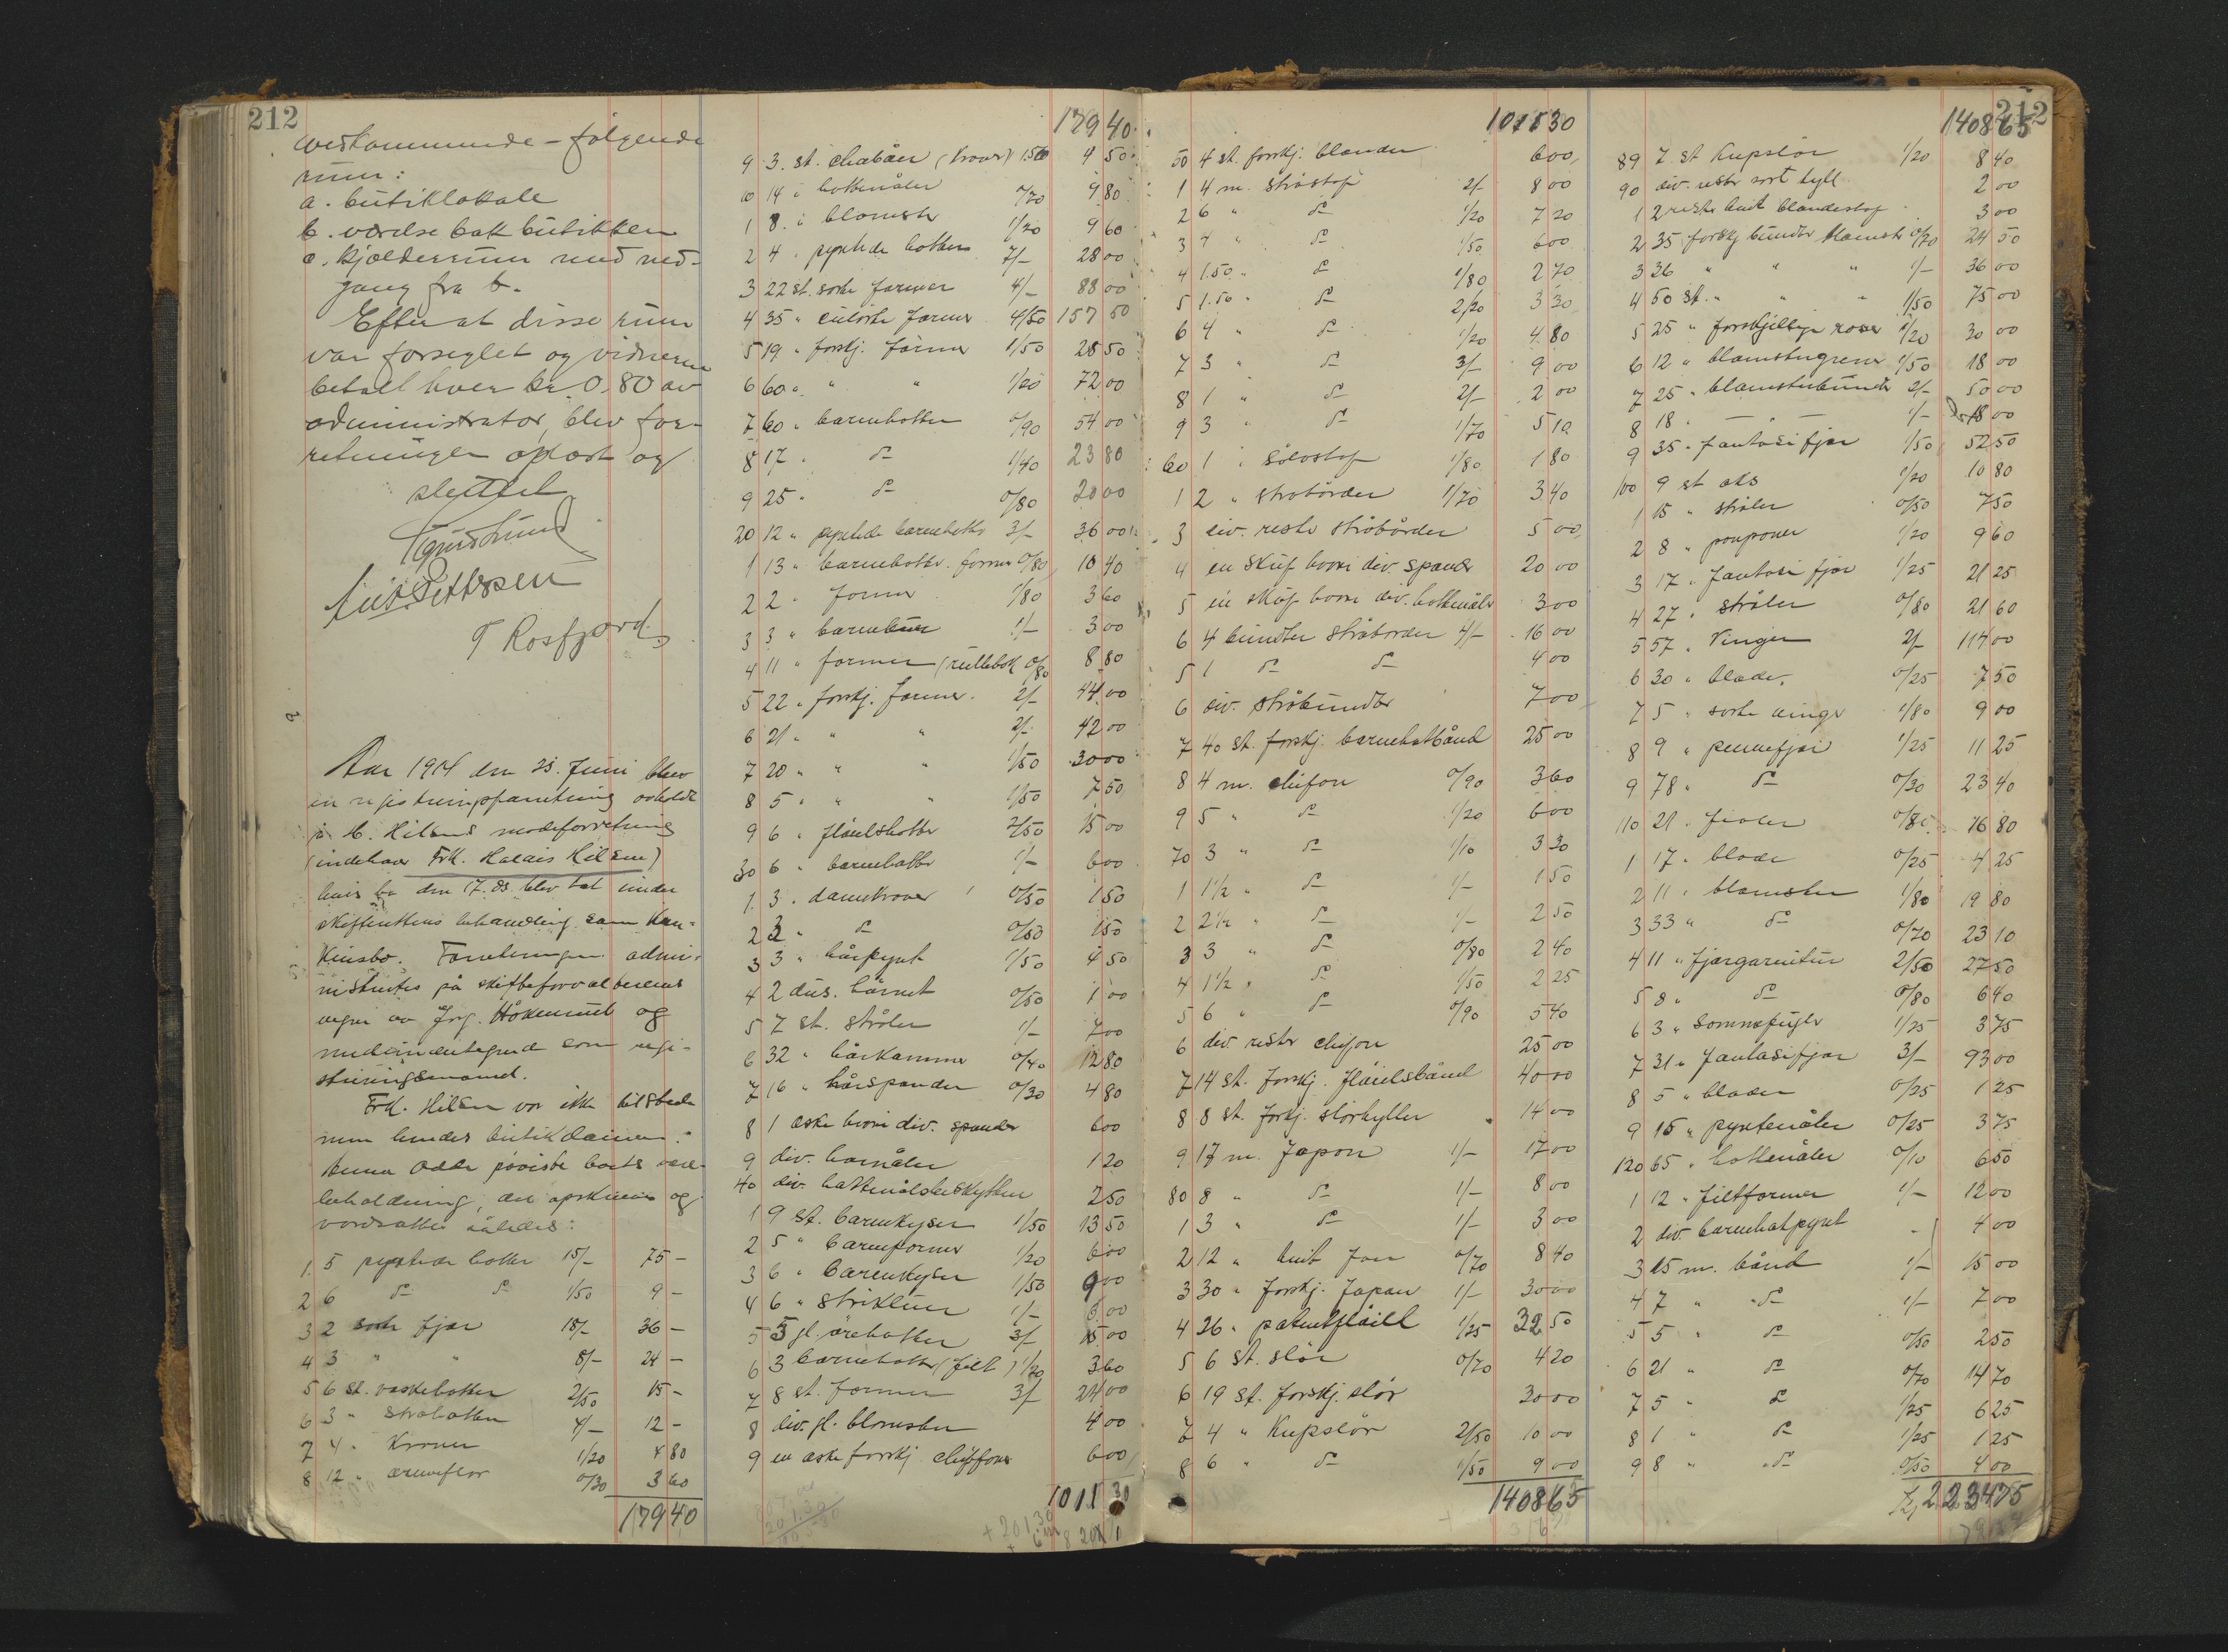 212
vedkommende – følgende
rum:
a. butiklokale
b. værelse bak butikken
c. kjælderrum med ned-
gang fra b.
Efter at disse rum
var forseglet og vidnerne
betalt hver kr. 0,80 av
administrator, blev for-
retningen oplæst og
sluttet
T Rosfjord
Aar 1914 den 23. Juni blev
en registreringsforretning avholdt
i C. Hilsens modeforretning
(indehaver Frk. Hilsen)
hvis bo den 17. ds. blev tat under
skifterettens behandling som kon-
kursbo. Forretningen admi-
nistrertes på skifteforvalterens
vegne av og
medundertegnede som regi-
streringsmænd.
Frk. Hilsen var ikke tilstede
men hendes butikdame.
Denne påviste boets vare-
beholdning, der opskreves og
således:
1. 5 pyntede hatter 15/- 75 -
2 6 do do 1/50 9 -
3 2 sorte fjær 18/- 36 -
4 3 " " 8/- 24 -
5 6 st. vaskehatter 2/50 15 -
6 3 " stråhatter 4/- 12 -
7 4 " Kroner 1/20 4 80
8 12 " 0/30 3 60
179 40
179 40
9 3. st. (kroner) 1 50 4 50
10 14 " hattenåler 0/70 9 80
1 8 " blomster 1/20 9 60
2 4 " pyntede hatter 7/- 28 00
3 22 st. sorte former 4/- 88 00
4 35 " culørte former 4/50 157 50
5 19 " forskj. former 1/50 28 50
6 60 " " " 1/20 72 00
7 60 " barnehatter 0/90 54 00
8 17 " do 1/40 23 80
9 25 " do 0/80 20 00
20 12 " pyntede barnehatter 3/- 36 00
1 13 " barnehatte former 0/80 10 40
2 2 " former 1/80 3 60
3 3 " 1/- 3 00
4 11 " former (rullebok 0/80 8 80
5 22 " forskj. former 2/- 44 00
6 21 " " " 2/- 42 00
7 20 " " " 1/50 30 00
8 5 " " " 1/50 7 50
9 6 " fløielshatter 2/50 15 00
30 6 " barnehatter 1/- 6 00
1 3 " damekroner 0/50 1 50
2 3 " do 0/50 1 50
3 3 " hårpynt 1/50 4 50
4 2 dus. hårnet 0/50 1 00
5 7 st. stråler 1/- 7 00
6 32 " hårkammer 0/40 12 80
7 16 " hårspænder 0/30 4 80
8 1 æske hvori div. spænder 6 00
9 div. hårnåler 1 20
40 div. hattenålsbeskyttere 2 50
1 9 st. barnekyser 1/50 13 50
2 5 " barneformer 1/20 6 00
3 6 " barnekyser 1/50 9 00
4 6 " 1/- 6 00
5 5 gl. hatter 3/- 15 00
6 3 barnehatter (filt) 1/20 3 60
7 8 st. former 3/- 24 00
8 div. gl. blomster 4 00
9 en æske forskj. chiffoner 6 00
1011 30
1011 30
50 4 st. forskj. blonder 6 00
1 4 m. stråstof 2/- 8 00
2 6 " do 1/20 7 20
3 4 " do 1/50 6 00
4 1.50 " do 1/80 2 70
5 1.50 " do 2/20 3 30
6 4 " do 1/20 4 80
7 3 " do 3/- 9 00
8 1 " do 2/- 2 00
9 3 " do 1/70 5 10
60 1 " sølvstof 1/80 1 80
1 2 " stråbårder 1/70 3 40
3 div. rester stråbårder 5 00
4 en skuf hvori div. spænder 20 00
5 en skuf hvori div. hattenåler 3 00
6 4 bundter stråbårder 4/- 16 00
5 1 do do 4 00
6 div. stråbundter 7 00
7 40 st. forskj. barnehatbånd 25 00
8 4 m. chifon 0/90 3 60
9 5 " do 1/20 6 00
70 3 " do 1/10 3 30
1 1½ " do 1/- 1 50
2 2½ " do 1/- 2 50
3 3 " do 0/80 2 40
4 1½ " do 1/50 2 25
5 6 " do 0/90 5 40
6 div. rester chifon 25 00
7 14 st. forskj. fløielsbånd 40 00
8 8 st. forskj. slørtyller 14 00
9 17 m. Japon 1/- 17 00
80 8 " do 1/- 8 00
1 3 " do 1/- 3 00
2 12 " hvit Jap 0/70 8 40
3 30 " forskj. Japon 1/- 30 00
4 26 " patentfløiel 1/25 32 50
5 6 st. slør 0/70 4 20
6 19 st. forskj. slør 30 00
7 4 " Kupslør 2/50 10 00
8 6 " do 1/50 9 00
1408 65
212
1408 65
89 7 st Kupslør 1/20 8 40
90 div. rester sort tyll 2 00
1 2 rester hvit blondestof 3 00
2 35 forskj bundter blomster 0/70 24 50
3 36 " " " 1/- 36 00
4 50 st. " " " 1/50 75 00
5 25 " forskjellige roser 1/20 30 00
6 12 " blomstergrener 1/50 18 00
7 25 " blomsterbundter 2/- 50 00
8 18 " — 1/- 18 00
9 35 " fantasifjær 1/50 52 50
100 9 st aks 1/20 10 80
1 15 " stråler 0/50 7 50
2 8 " ponponer 1/20 9 60
3 17 " fantasi fjær 1/25 21 25
4 27 " stråler 0/80 21 60
5 57 " Vinger 2/- 114 00
6 30 " blade. 0/25 7 50
7 5 " sorte vinger 1/80 9 00
8 9 " pennefjær 1/25 11 25
9 78 " do 0/30 23 40
110 21 " fioler 0/80 16 80
1 17 " blade 0/25 4 25
2 11 " blomster 1/80 19 80
3 33 " do 0/70 23 10
4 11 " fjærgarnitur 2/50 27 50
5 8 " do 0/80 6 40
6 3 " Sommerfugler 1/25 3 75
7 31 " fantasifjær 3/- 93 00
8 5 " blader 0/25 1 25
9 15 " pyntenåler 0/25 3 75
120 65 " hattenåler 0/10 6 50
1 12 " filtformer 1/- 12 00
2 div. barnehatpynt 4 00
3 15 m. bånd 1/- 15 00
4 7 " do 1/- 7 00
5 5 " do 0/50 2 50
6 21 " do 0/70 14 70
7 5 " do 1/25 6 25
8 1 " do 1/25 1 25
9 8 " do 0/50 4 00
Kr. 2234 75